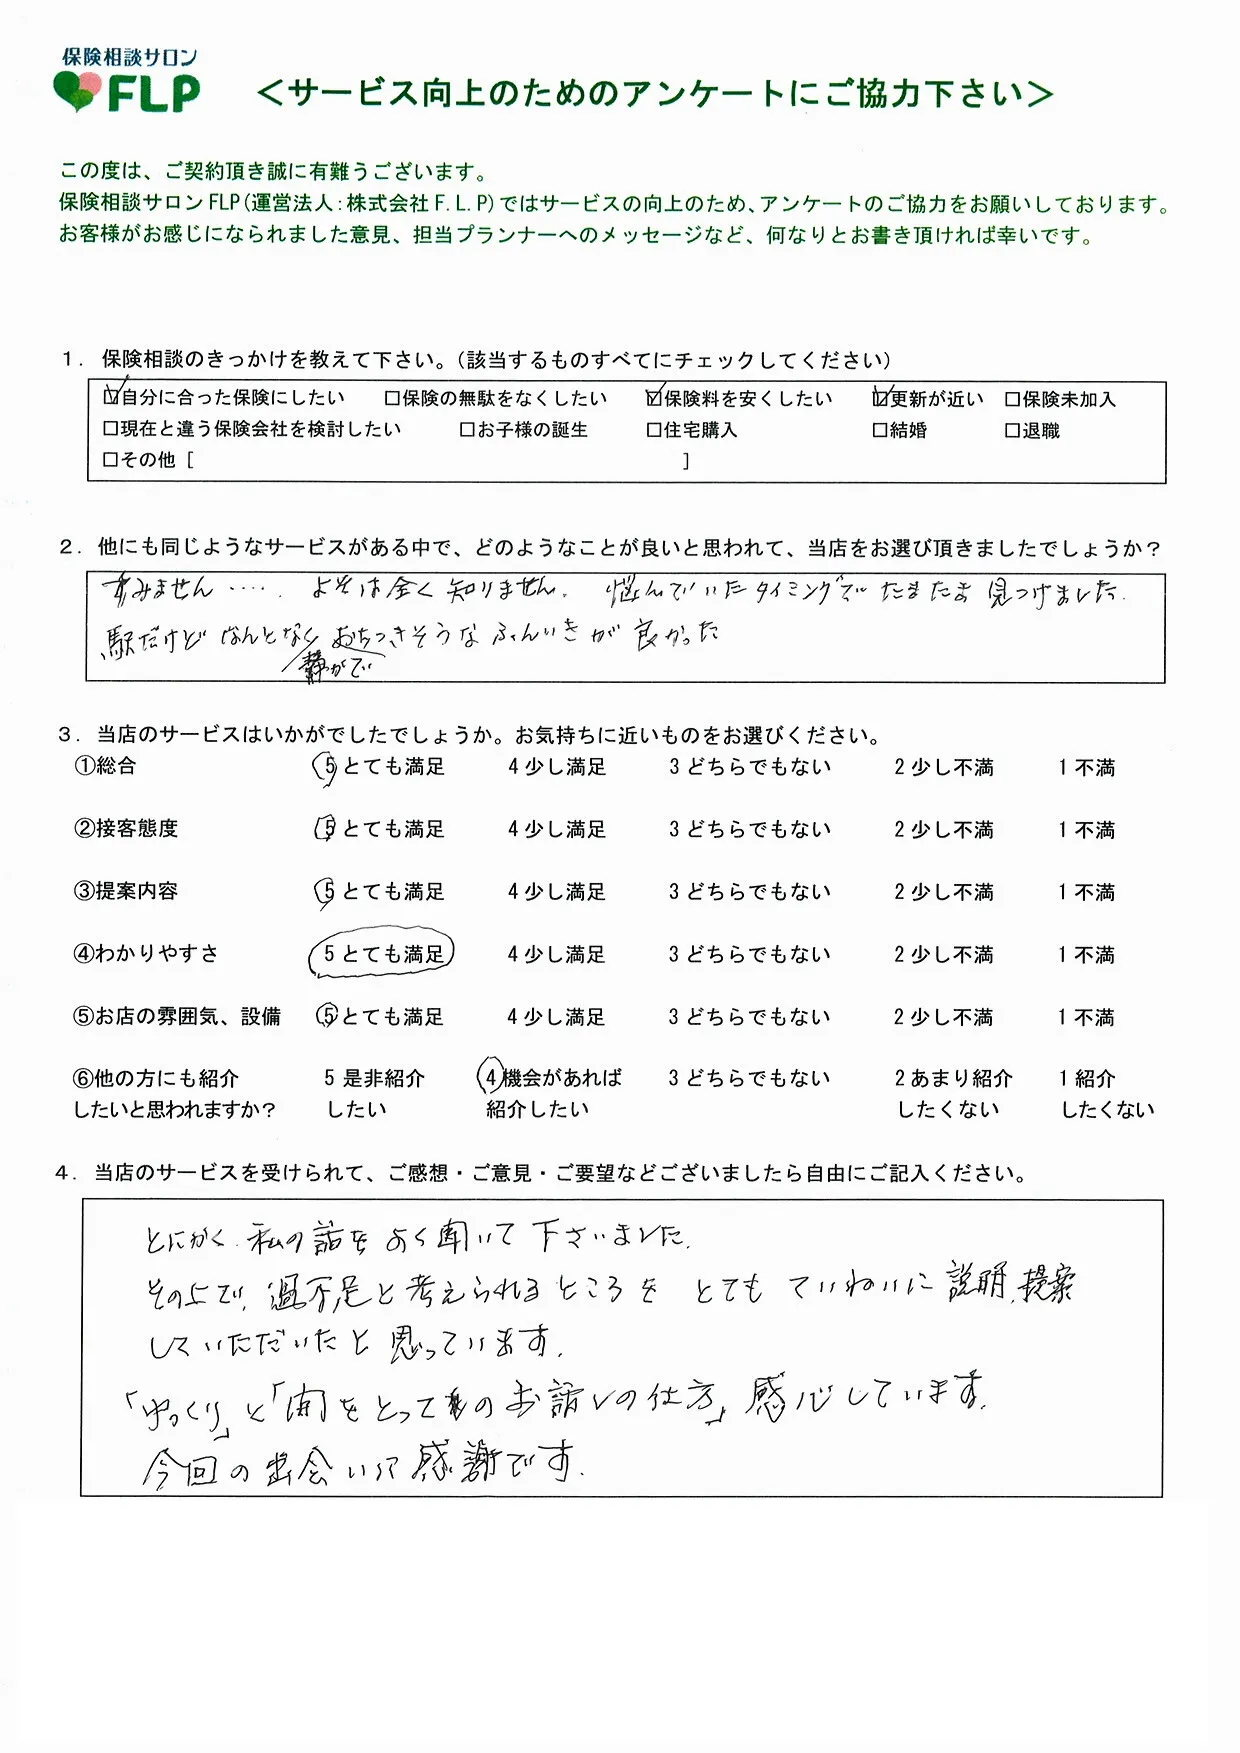 保険相談サロン
FLP
＜サービス向上のためのアンケートにご協力下さい＞
この度は、ご契約頂き誠に有難うございます。
保険相談サロンFLP(運営法人:株式会社F.L.P)ではサービスの向上のため、アンケートのご協力をお願いしております。
お客様がお感じになられました意見、担当プランナーへのメッセージなど、何なりとお書き頂ければ幸いです。
1. 保険相談のきっかけを教えて下さい。(該当するものすべてにチェックしてください)
☑自分に合った保険にしたい □保険の無駄をなくしたい ☑保険料を安くしたい ☑更新が近い □保険未加入
□現在と違う保険会社を検討したい □お子様の誕生 □住宅購入 □結婚 □退職
□その他 [ ]
2. 他にも同じようなサービスがある中で、どのようなことが良いと思われて、当店をお選び頂きましたでしょうか?
すみません‥‥. よそは全く知りません. 悩んでいたタイミングでたまたま見つけました.
駅だけど なんとなく おちつきそうな ふんいきが 良かった
静かで
3. 当店のサービスはいかがでしたでしょうか。お気持ちに近いものをお選びください。
①総合 5 とても満足 4 少し満足 3 どちらでもない 2 少し不満 1 不満
②接客態度 5 とても満足 4 少し満足 3 どちらでもない 2 少し不満 1 不満
③提案内容 5 とても満足 4 少し満足 3 どちらでもない 2 少し不満 1 不満
④わかりやすさ 5 とても満足 4 少し満足 3 どちらでもない 2 少し不満 1 不満
⑤お店の雰囲気、設備 5 とても満足 4 少し満足 3 どちらでもない 2 少し不満 1 不満
⑥他の方にも紹介 5 是非紹介 4 機会があれば 3 どちらでもない 2 あまり紹介 1 紹介
したいと思われますか? したい 紹介したい したくない したくない
4. 当店のサービスを受けられて、ご感想・ご意見・ご要望などございましたら自由にご記入ください。
とにかく. 私の話をよく聞いて下さいました.
その上で, 過不足と考えられるところを とても ていねいに説明, 提案
していただいたと思っています.
「ゆっくり」と「間をとってのお話しの仕方」感心しています.
今回の出会いに感謝です.